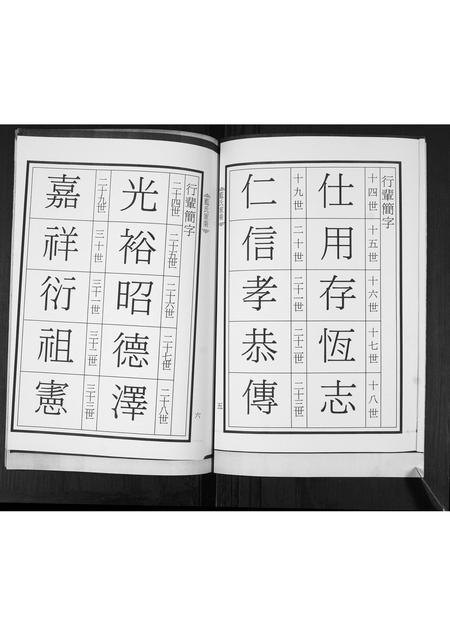 行輩簡字
十四世 仕
十五世 用
十六世 存
十七世 恆
十八世 志
十九世 仁
二十世 信
二十一世 孝
二十二世 恭
二十三世 傳
五
行輩簡字
二十四世 光
二十五世 裕
二十六世 昭
二十七世 德
二十八世 澤
二十九世 嘉
三十世 祥
三十一世 衍
三十二世 祖
三十三世 憲
六